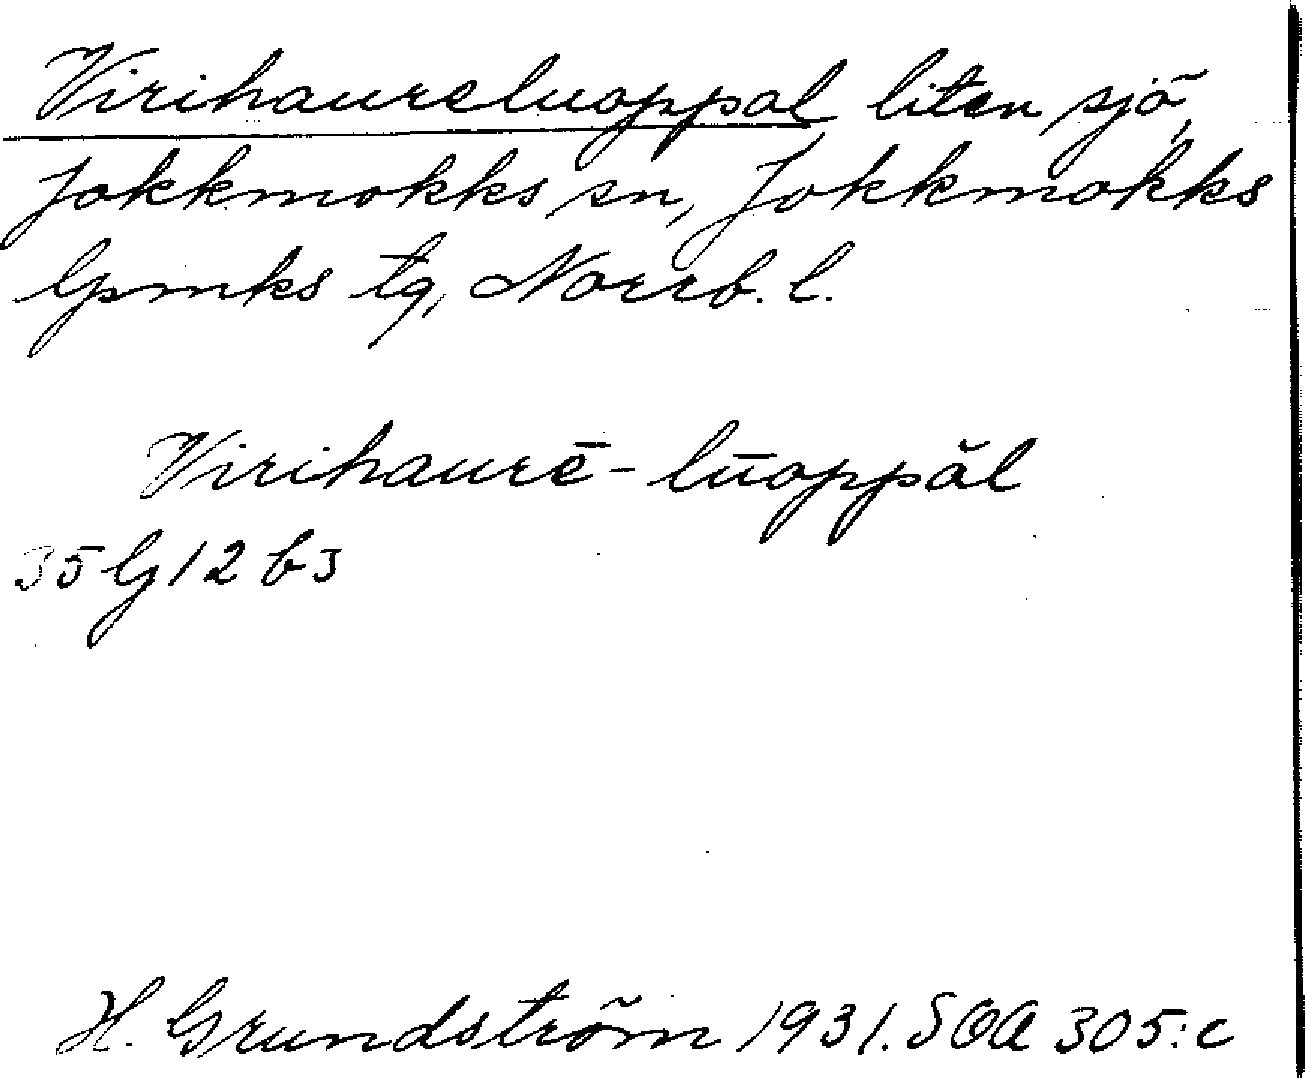 Virihaureluoppal liten sjö,
Jokkmokks sn, Jokkmokks
lpmks tg, Norrb. l.
Virihaurē-lūoppăl
35 G 12 b3
H. Grundström 1931. SOA 305:c